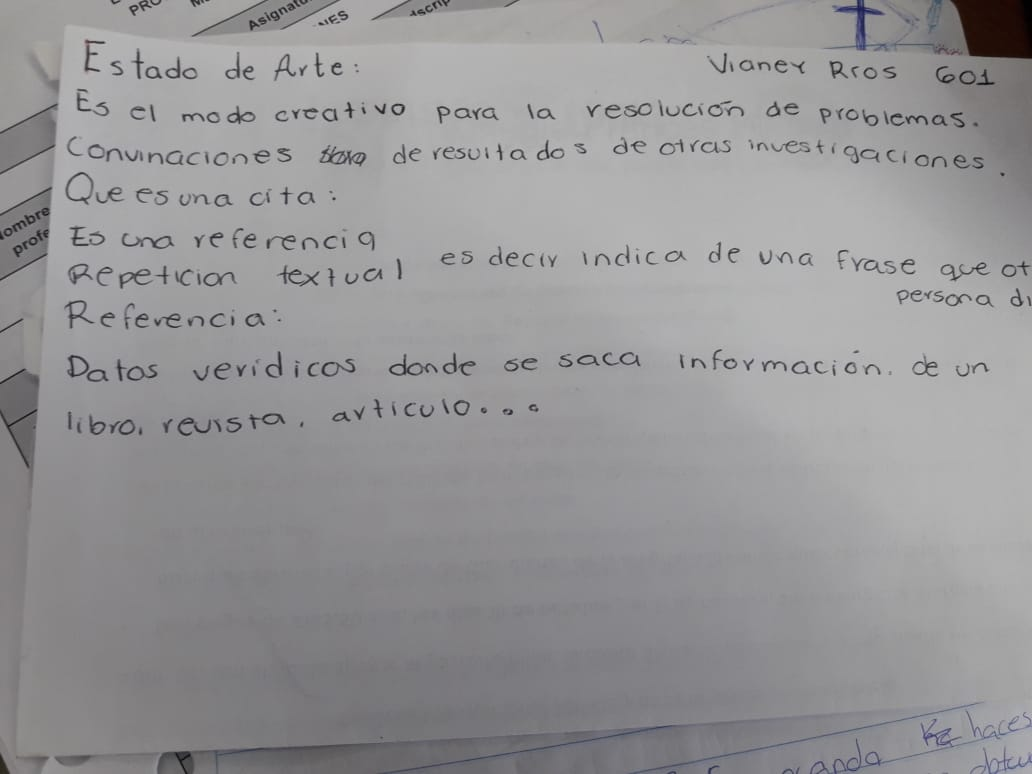 PRO
Asignatu
NES
scrip
Estado de Arte:
Vianey Rros 601
Es el modo creativo para la resolución de problemas.
Convinaciones de resultados de otras investigaciones.
Que es una cita:
Es una referencia
Repeticion textual es decir indica de una frase que ot
persona di
Referencia:
Datos verídicos donde se saca información. de un
libro, revista, articulo...
ombre
profe
haces